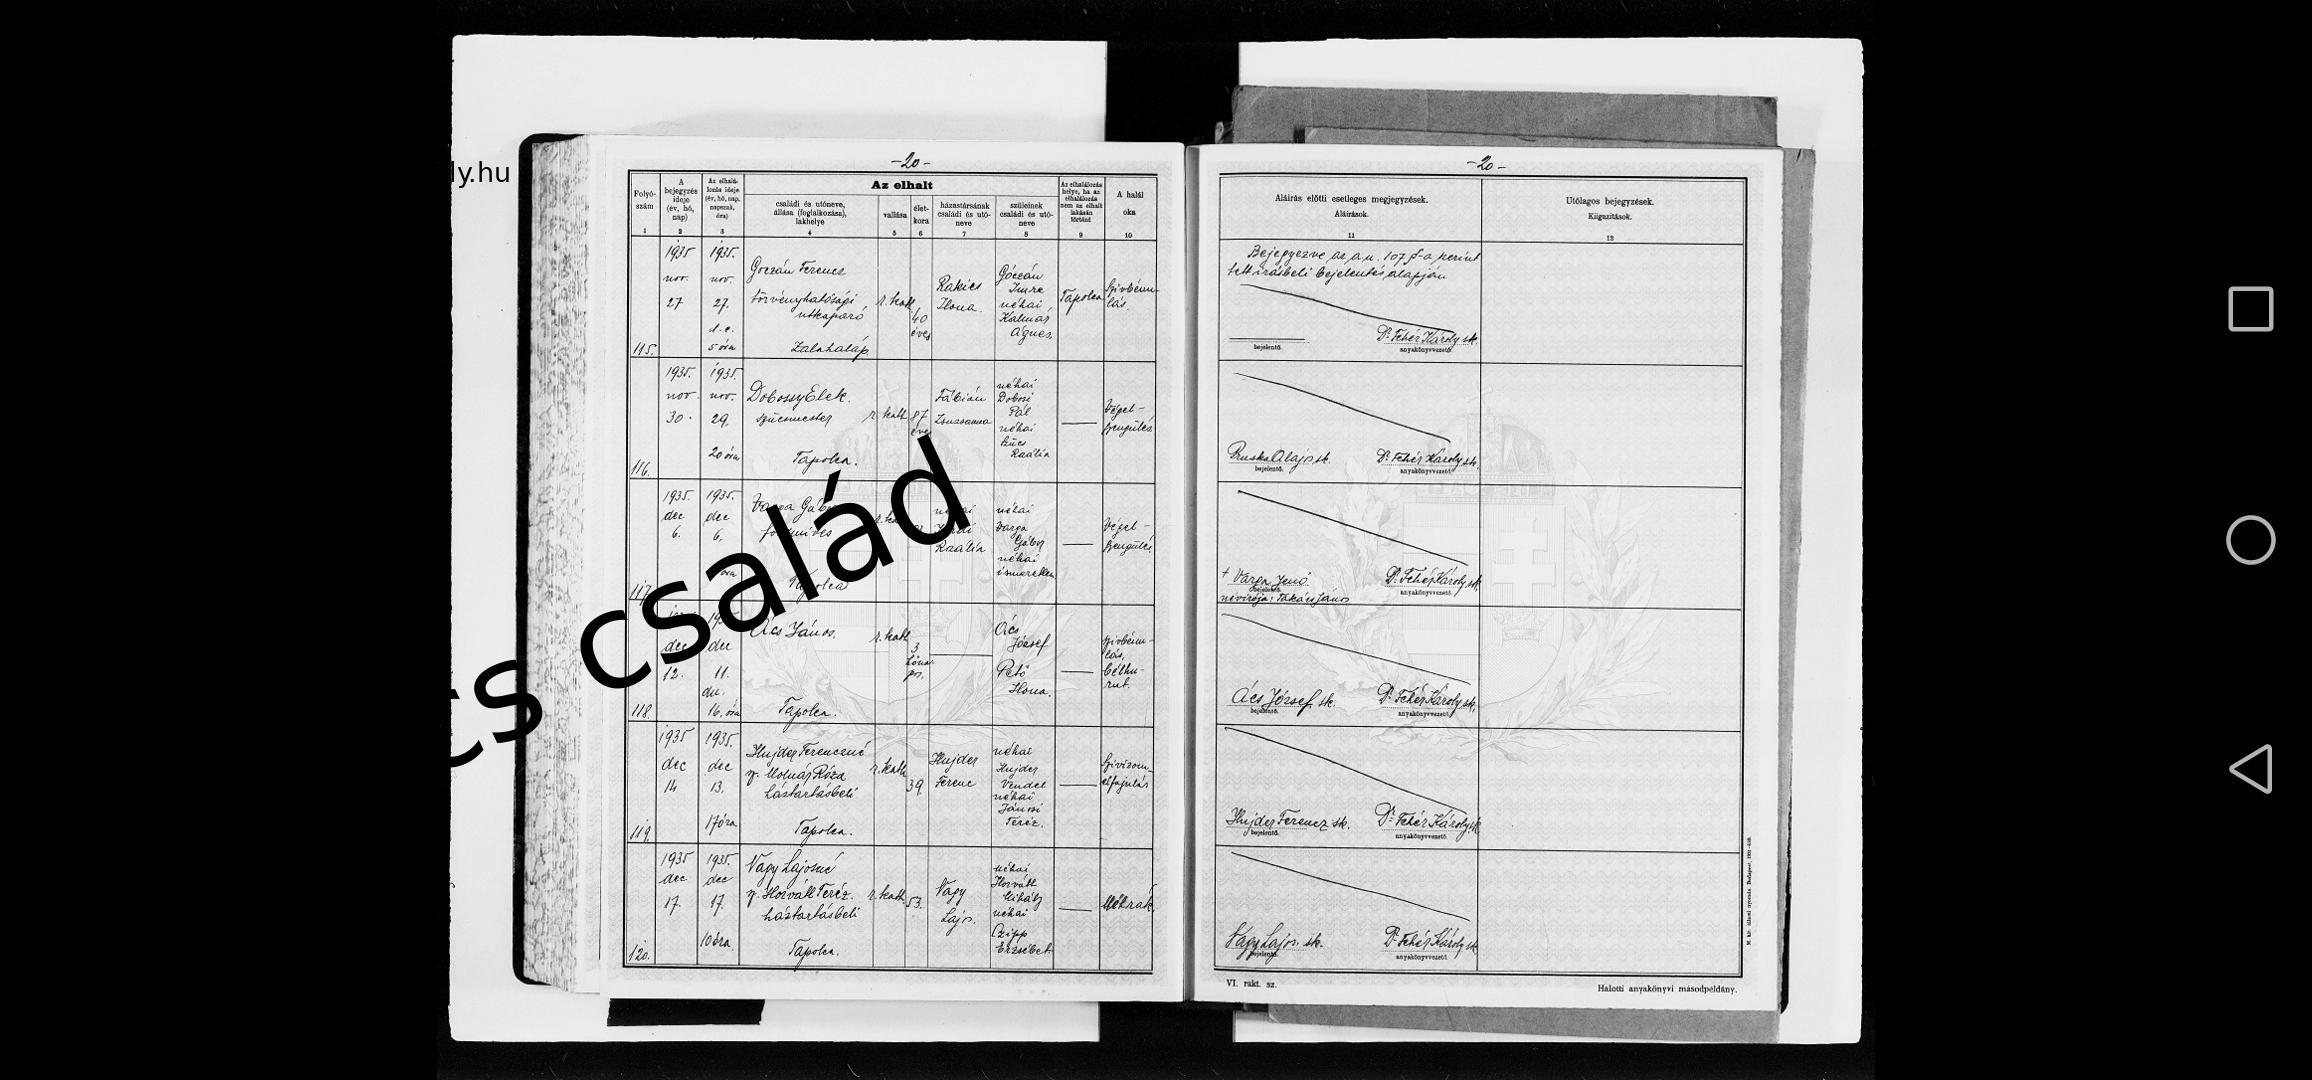 -20-
-20-
ly.hu
Folyó-
szám
1
A
bejegyzés
ideje
(év, hó,
nap)
2
Az elhalá-
lozás ideje
(év, hó, nap,
napszak,
óra)
3
Az elhalt
családi és utóneve,
állása (foglalkozása),
lakhelye
4
vallása
5
élet-
kora
6
házastársának
családi és utó-
neve
7
szüleinek
családi és utó-
neve
8
Az elhalálozás
helye, ha az
elhalálozás
nem az elhalt
lakásán
történt
9
A halál
oka
10
Aláírás előtti esetleges megjegyzések.
Aláírások.
11
Utólagos bejegyzések.
Kiigazítások.
12
115.
1935
nov.
27
1935.
nov.
27.
d. e.
5 óra
Goczán Ferencz
törvényhatósági
útkaparó
Zalahaláp
r. kath.
40
éves
Rakics
Ilona.
Góczán
Imre
néhai
Kalmár
Ágnes.
Tapolca
Szívbénu-
lás.
Bejegyezve az a. u. 107 §-a szerint
tett írásbeli bejelentés alapján
bejelentő.
Dr. Fehér Károly sk.
anyakönyvvezető.
116.
1935.
nov.
30.
1935.
nov.
29.
20 óra
Dobossy Elek.
szűcsmester
Tapolca.
r. kath.
87
éves
Fábián
Zsuzsanna
néhai
Dobosi
Pál
néhai
Szűcs
Rozália
Végel-
gyengülés
Pruska Alajos sk.
bejelentő.
Dr. Fehér Károly sk.
anyakönyvvezető.
117.
1935.
dec
6.
1935.
dec
6.
óra
Varga Gábor
földmíves
Tapolca
néhai
Rozália
néhai
Varga
Gábor
néhai
ismeretlen
Végel-
gyengülés
+ Varga Jenő
bejelentő.
névírója: Takács János
Dr. Fehér Károly sk.
anyakönyvvezető.
118.
dec
12.
dec
11.
du.
16. óra
Ács János.
Tapolca.
r. kath.
3
hóna-
pos.
Ács
József
Pető
Ilona.
szívbénu-
lás,
bélhu-
rut.
Ács József sk.
bejelentő.
Dr. Fehér Károly sk.
anyakönyvvezető.
119.
1935
dec
14
1935.
dec
13.
17 óra
Hujder Ferenczné
sz. Molnár Róza
háztartásbeli
Tapolca.
r. kath.
39.
Hujder
Ferenc
néhai
Hujder
Vendel
néhai
Jánosi
Teréz.
Szívizom-
elfajulás
Hujder Ferencz sk.
bejelentő.
Dr. Fehér Károly sk.
anyakönyvvezető.
120.
1935
dec
17.
1935.
dec
17.
10 óra.
Nagy Lajosné
sz. Horváth Teréz.
háztartásbeli
Tapolca.
r. kath.
53.
Nagy
Lajos.
néhai
Horváth
Mihály
néhai
Czipp
Erzsébet
Méhrák.
Nagy Lajos. sk.
bejelentő.
Dr. Fehér Károly sk.
anyakönyvvezető.
cs család
VI. rakt. sz.
Halotti anyakönyvi másodpéldány.